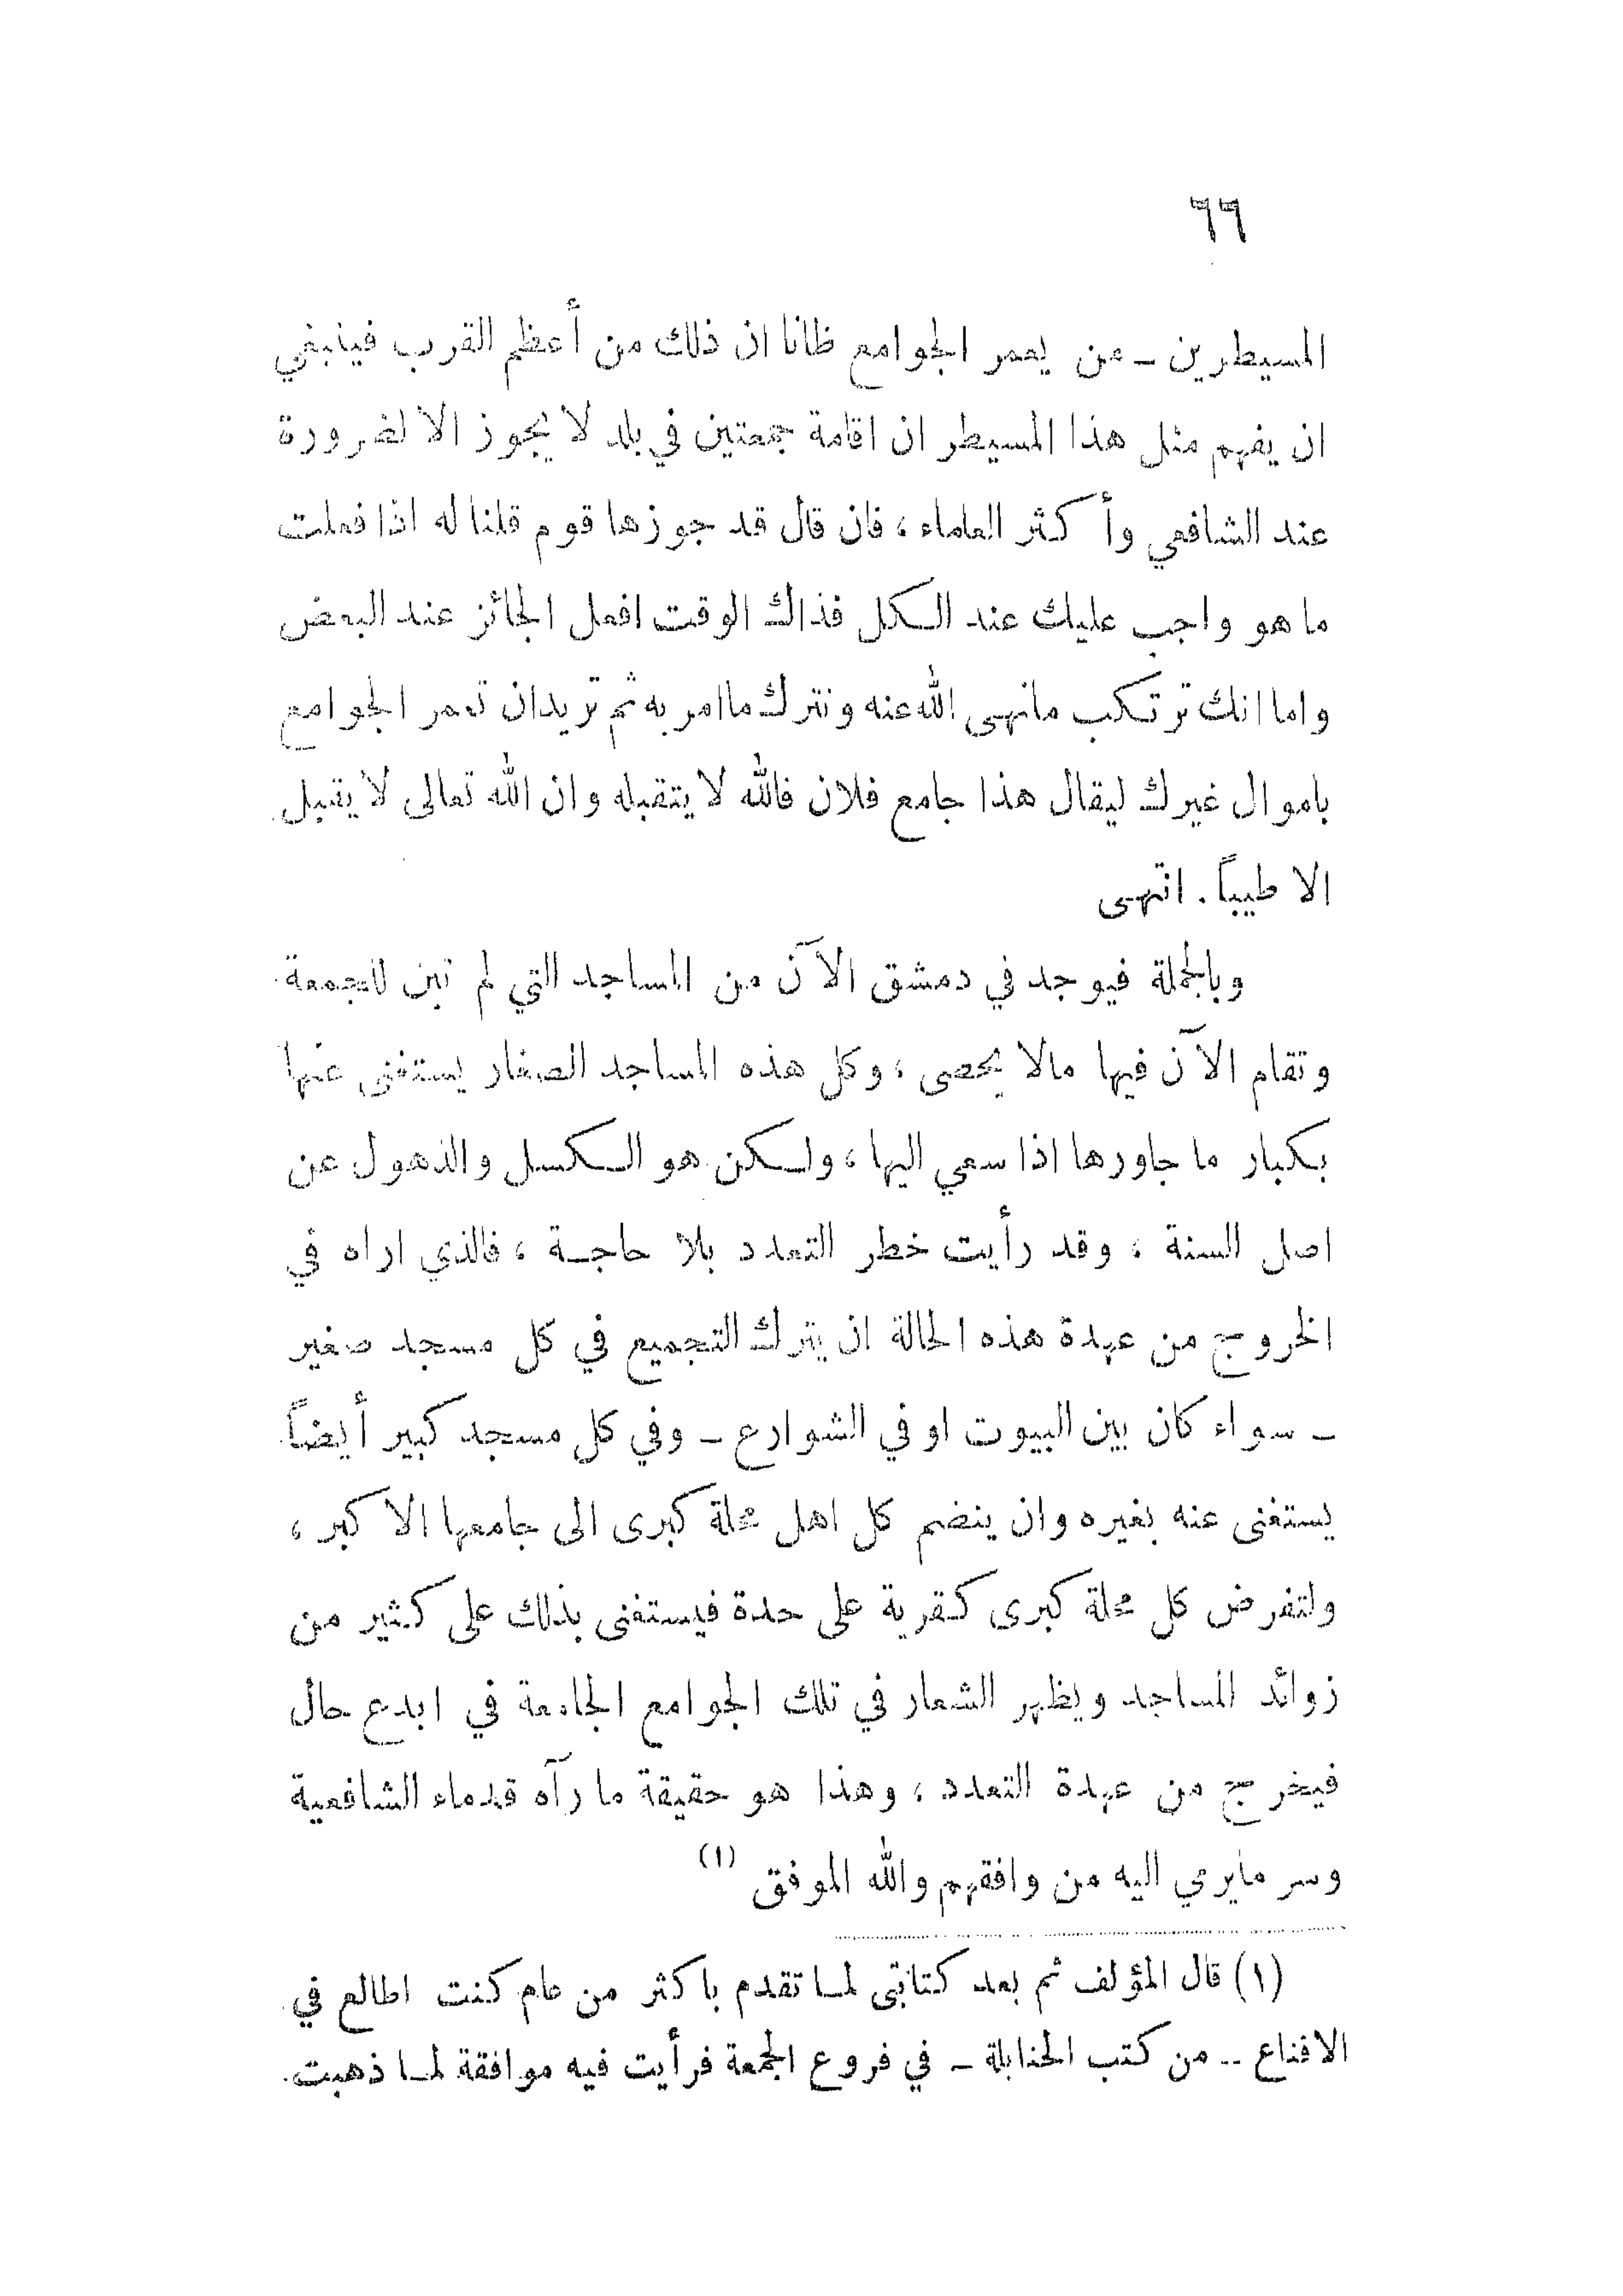 ٦٦
المسيطرين ـ من يعمر الجوامع ظانا ان ذلك من أعظم القرب فينبغي
ان يفهم مثل هذا المسيطر ان اقامة جمعتين في بلد لا يجوز الا لضرورة
عند الشافعي وأكثر العلماء ، فان قال قد جوزها قوم قلنا له اذا فعلت
ما هو واجب عليك عند الكل فذاك الوقت افعل الجائز عند البعض
واما انك ترتكب مانهى الله عنه ونترك ماامر به ثم تريد ان تعمر الجوامع
باموال غيرك ليقال هذا جامع فلان فالله لا يتقبله وان الله تعالى لا يقبل
الا طيباً . انتهى
وبالجملة فيوجد في دمشق الآن من المساجد التي لم تبن للجمعة
وتقام الآن فيها مالا يحصى ، وكل هذه المساجد الصغار يستغنى عنها
بكبار ما جاورها اذا سعي اليها ، ولكن هو الكسل والذهول عن
اصل السنة ، وقد رأيت خطر التعدد بلا حاجة ، فالذي اراه في
الخروج من عهدة هذه الحالة ان يترك التجميع في كل مسجد صغير
ـ سواء كان بين البيوت او في الشوارع ـ وفي كل مسجد كبير أيضاً
يستغنى عنه بغيره وان ينضم كل اهل محلة كبرى الى جامعها الاكبر ،
ولتفرض كل محلة كبرى كقرية على حدة فيستغنى بذلك على كثير من
زوائد المساجد ويظهر الشعار في تلك الجوامع الجامعة في ابدع حال
فيخرج من عهدة التعدد ، وهذا هو حقيقة ما رآه قدماء الشافعية
وسر مايرمي اليه من وافقهم والله الموفق (١)
(١) قال المؤلف ثم بعد كتابتى لما تقدم باكثر من عام كنت اطالع في
الاقناع ـ من كتب الحنابلة ـ في فروع الجمعة فرأيت فيه موافقة لما ذهبت